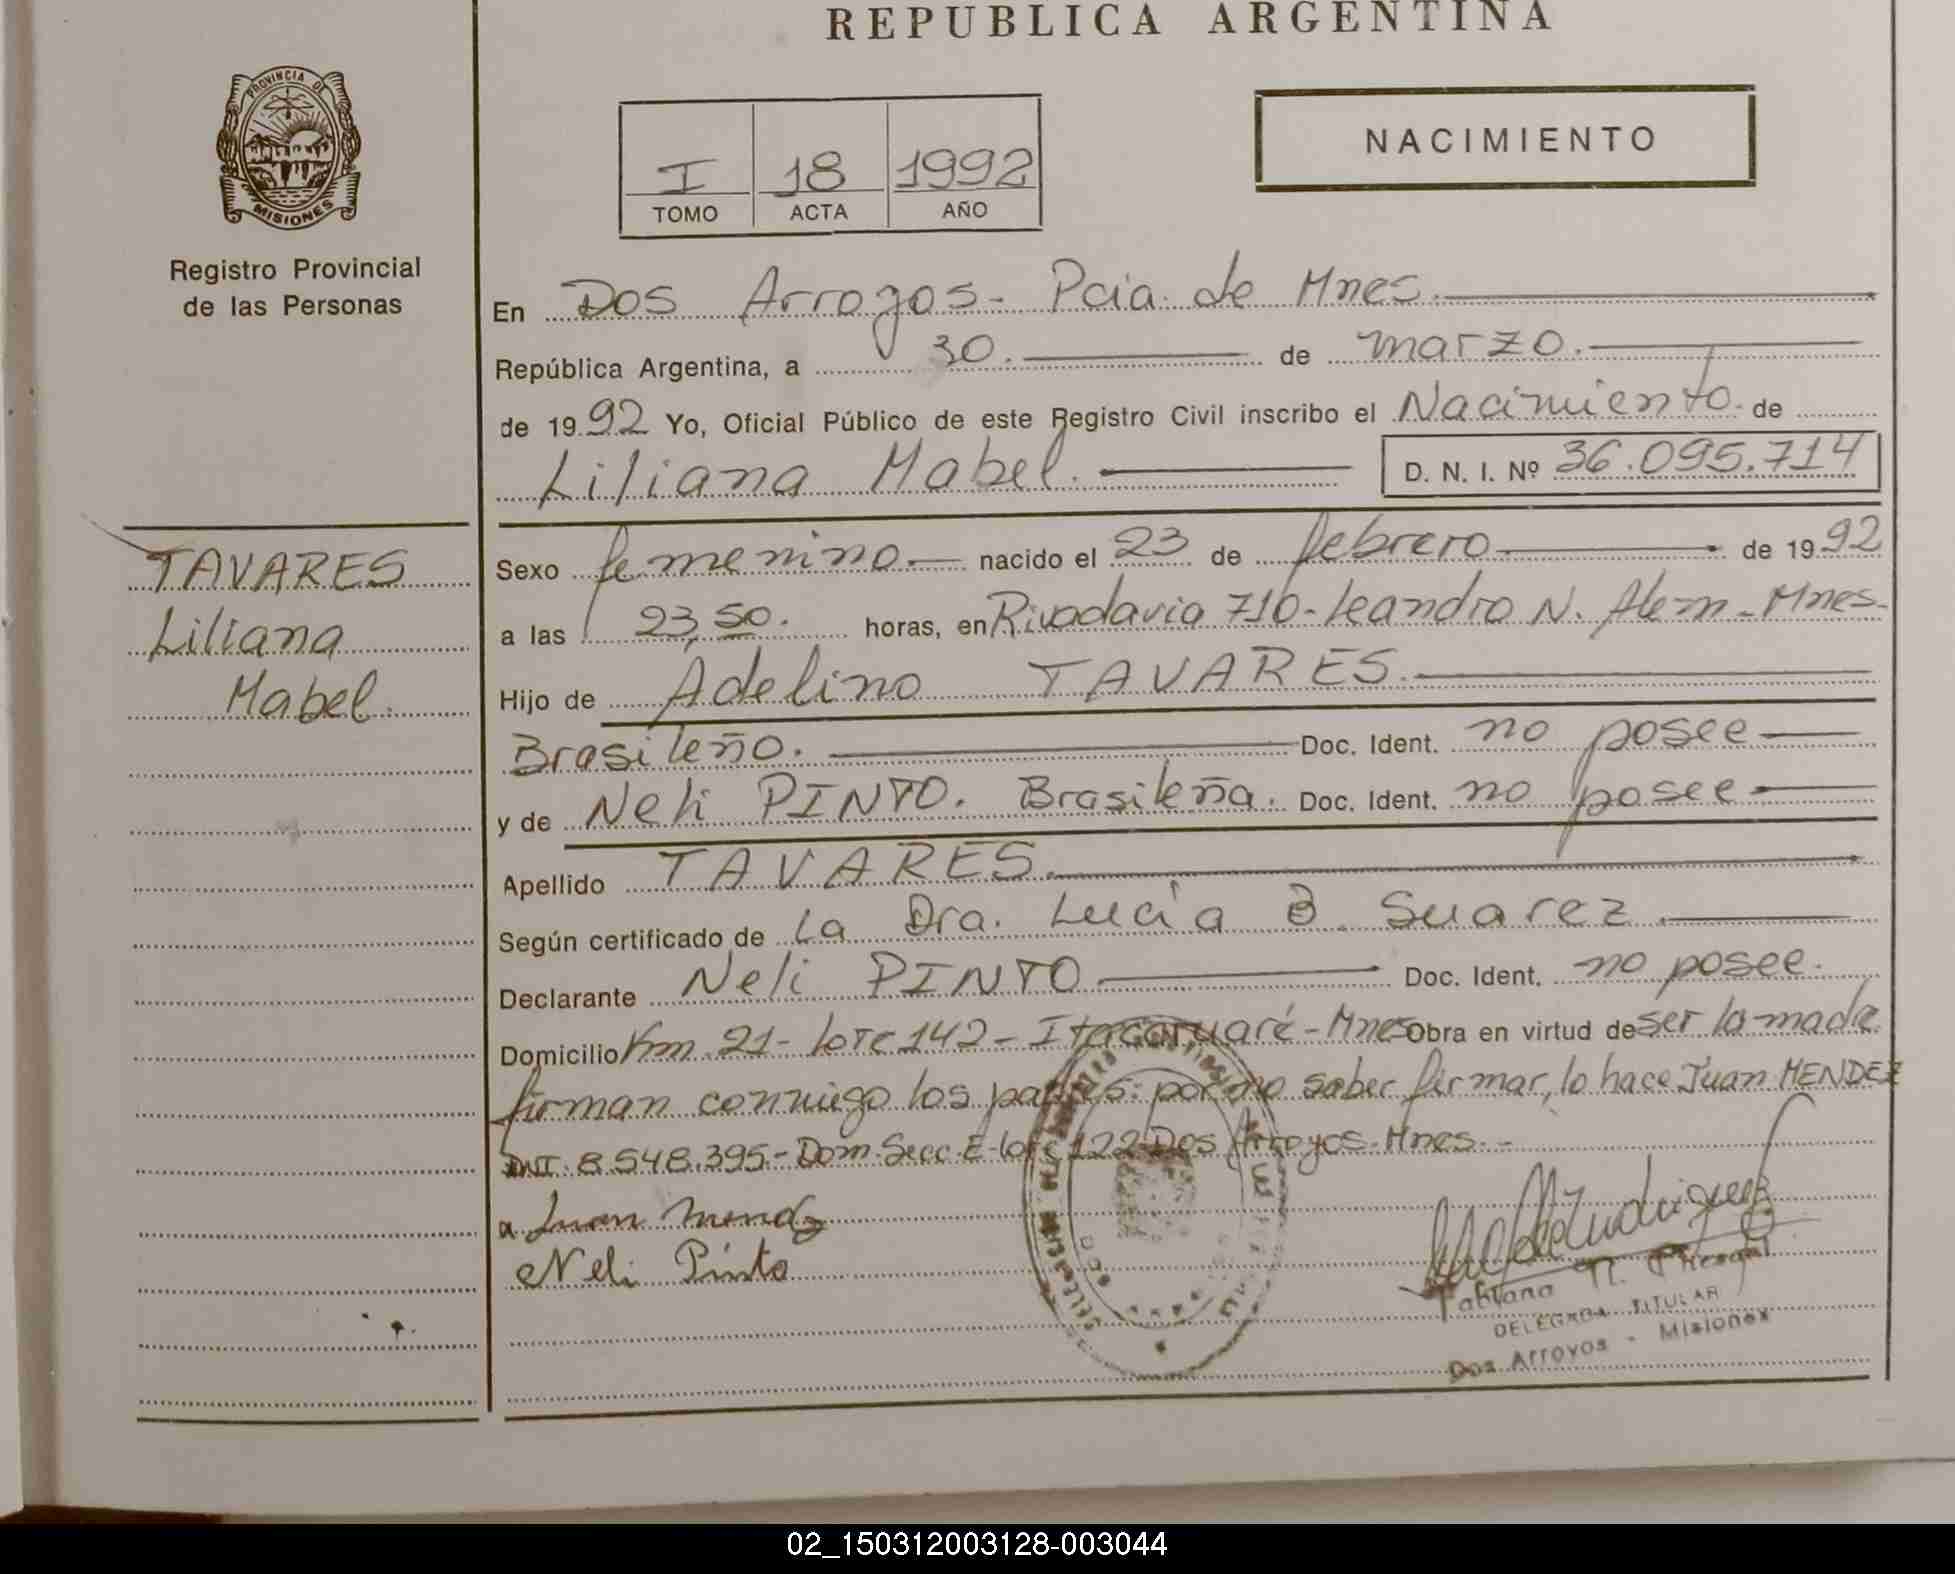 REPUBLICA ARGENTINA
PROVINCIA DE
MISIONES
Registro Provincial
de las Personas
I 18 1992
TOMO ACTA AÑO
NACIMIENTO
En Dos Arroyos - Pcia. de Mnes.
República Argentina, a 30. de marzo.
de 1992 Yo, Oficial Público de este Registro Civil inscribo el Nacimiento. de
Liliana Mabel. D. N. I. Nº 36.095.714
TAVARES
Liliana
Mabel.
Sexo femenino nacido el 23 de febrero de 1992
a las 23,50. horas, en Rivadavia 710 - Leandro N. Alem - Mnes.
Hijo de Adelino TAVARES.
Brasileño. Doc. Ident. no posee
y de Neli PINTO. Brasileña. Doc. Ident. no posee
Apellido TAVARES.
Según certificado de La Dra. Lucía B. Suarez.
Declarante Neli PINTO Doc. Ident. no posee.
Domicilio Km. 21 - lote 142 - Itacaruaré - Mnes Obra en virtud de ser la madre
firman conmigo los padres: por no saber firmar, lo hace Juan MENDEZ
DNI. 8.548.395 - Dom. Secc. E - lote 122 Dos Arroyos - Mnes. -
a Juan Mendez
Neli Pinto
DELEGADA TITULAR
Dos Arroyos - Misiones
02_150312003128-003044